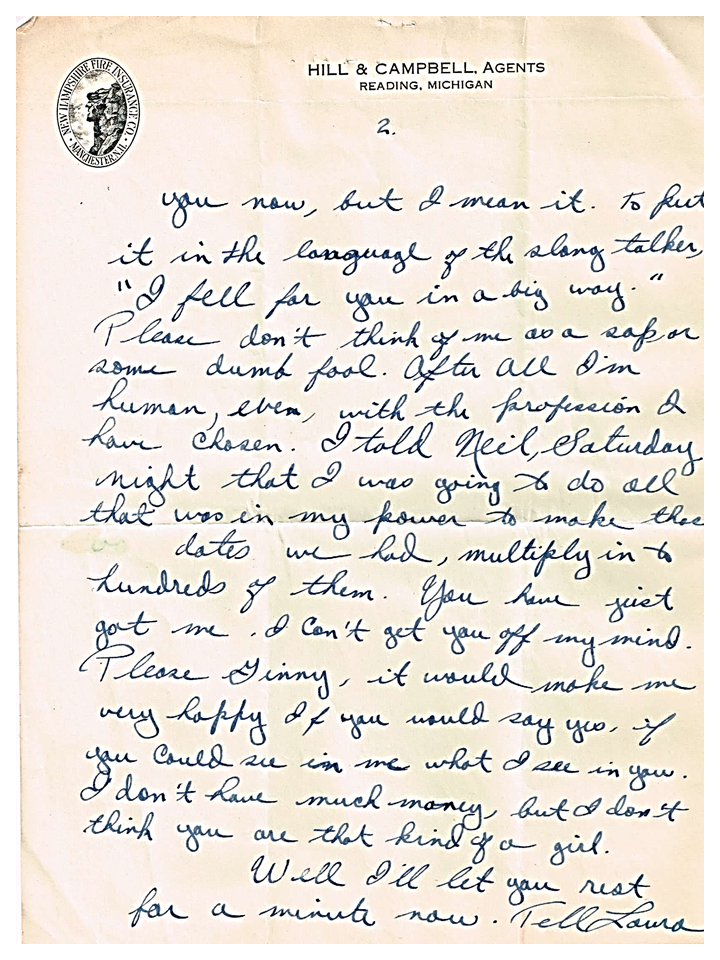 HILL & CAMPBELL, AGENTS
READING, MICHIGAN
NEW HAMPSHIRE FIRE INSURANCE CO.
MANCHESTER N.H.
2.
you now, but I mean it. To put
it in the language of the slang talker,
"I fell for you in a big way."
Please don't think of me as a sap or
some dumb fool. After all I'm
human, even, with the profession I
have chosen. I told Neil, Saturday
night that I was going to do all
that was in my power to make thos
dates we had, multiply in to
hundreds of them. You have just
got me. I can't get you off my mind.
Please Ginny, it would make me
very happy If you would say yes, if
you could see in me what I see in you.
I don't have much money, but I don't
think you are that kind of a girl.
Well I'll let you rest
for a minute now. Tell Laura